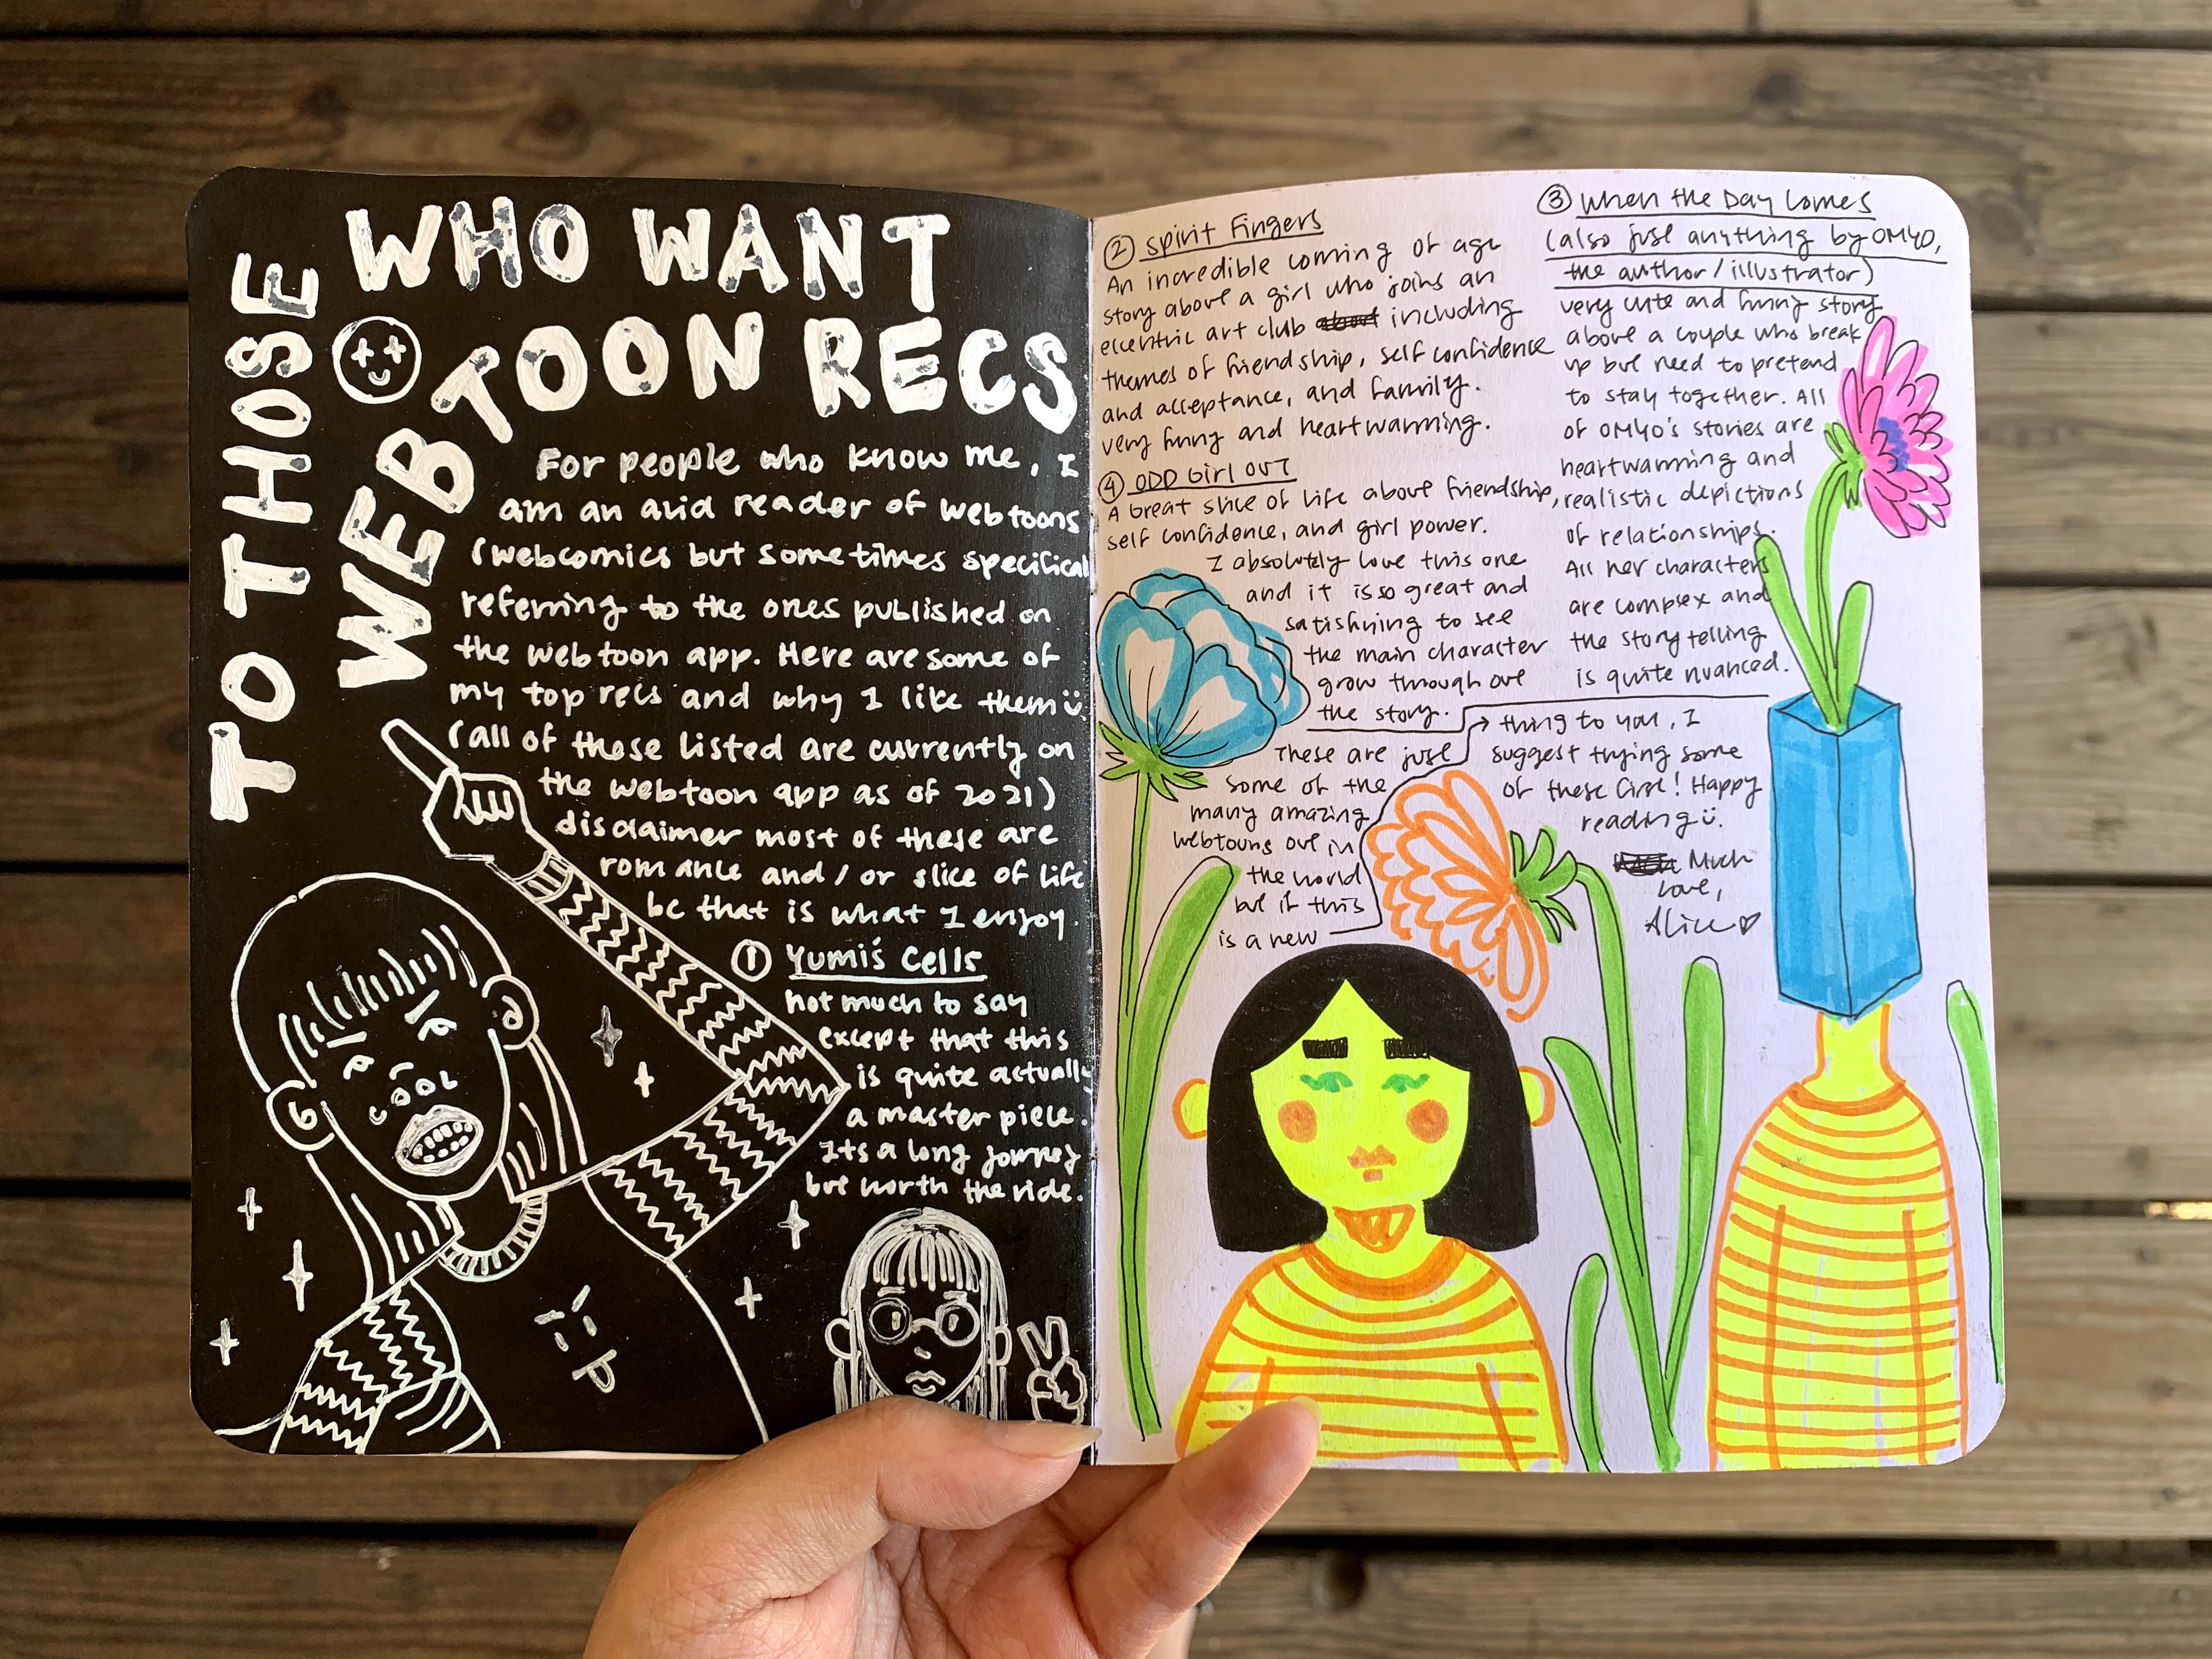 TO THOSE
WHO WANT
WEBTOON RECS
For people who know me, I
am an avid reader of webtoons
(webcomics but sometimes specifical
referring to the ones published on
the webtoon app. Here are some of
my top recs and why I like them
(all of these listed are currently on
the webtoon app as of 2021)
disclaimer most of these are
romance and/or slice of life
bc that is what I enjoy.
① Yumi's Cells
not much to say
except that this
is quite actually
a master piece.
Its a long journey
but worth the ride.
② Spirit Fingers
An incredible coming of age
story about a girl who joins an
eccentric art club about including
themes of friendship, self confidence
and acceptance, and family.
very funny and heartwarming.
④ ODD Girl OUT
A Great slice of life about friendship,
self confidence, and girl power.
I absolutely love this one
and it is so great and
satisfying to see
the main character
grow through out
the story.
These are just
some of the
many amazing
webtoons out in
the world
but if this
is a new
③ When the Day Comes
(also just anything by OMYO,
the author/illustrator)
very cute and funny story
about a couple who break
up but need to pretend
to stay together. All
of OMYO's stories are
heartwarming and
realistic depictions
of relationships.
All her characters
are complex and
the story telling
is quite nuanced.
→ thing to you, I
suggest trying some
of these first! Happy
reading
Much
Love,
Alice ♡